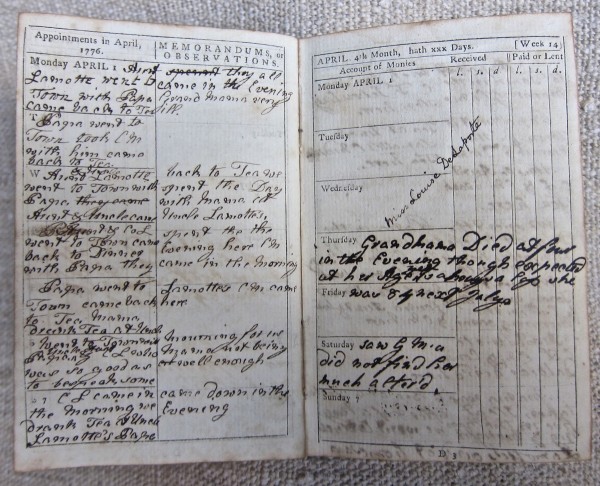 Appointments in April,
1776.
MEMORANDUMS, or
OBSERVATIONS.
Monday APRIL 1 Aunt
Lamotte went to
Town with Papa
came back to Tea
spent they all
came in the Evening
Grand Mama very
ill.
T Papa went to
Town took
with him came
back to Tea
W Aunt Lamotte
went to Town with
Papa they came
Aunt & Uncle came
back to Tea we
spent the Day
with Mama at
Uncle Lamotte's
Aunt &
went to Town came
back to Dinner
with Papa they
spent the
Evening here
came in the morning
Papa went to
Town came back
to Tea Mama
drank Tea at Uncle
Lamotte's came
here
went to Town with
Papa
was so good as
to bespeak some
mourning for us
Mama not being
well enough
came in
the morning we
drank Tea at Uncle
Lamotte's Papa
came down in the
Evening
APRIL 4th Month, hath xxx Days.
[Week 14]
Account of Monies
Received
Paid or Lent
l. s. d. l. s. d.
Monday APRIL 1
Tuesday
Wednesday
Miss Louise Delaporte
Thursday Grandmama Died at four
in the Evening though expected
at her Age
Friday was 84 next July
Saturday saw G M a
did not find her
much alterd
Sunday 7
D 3